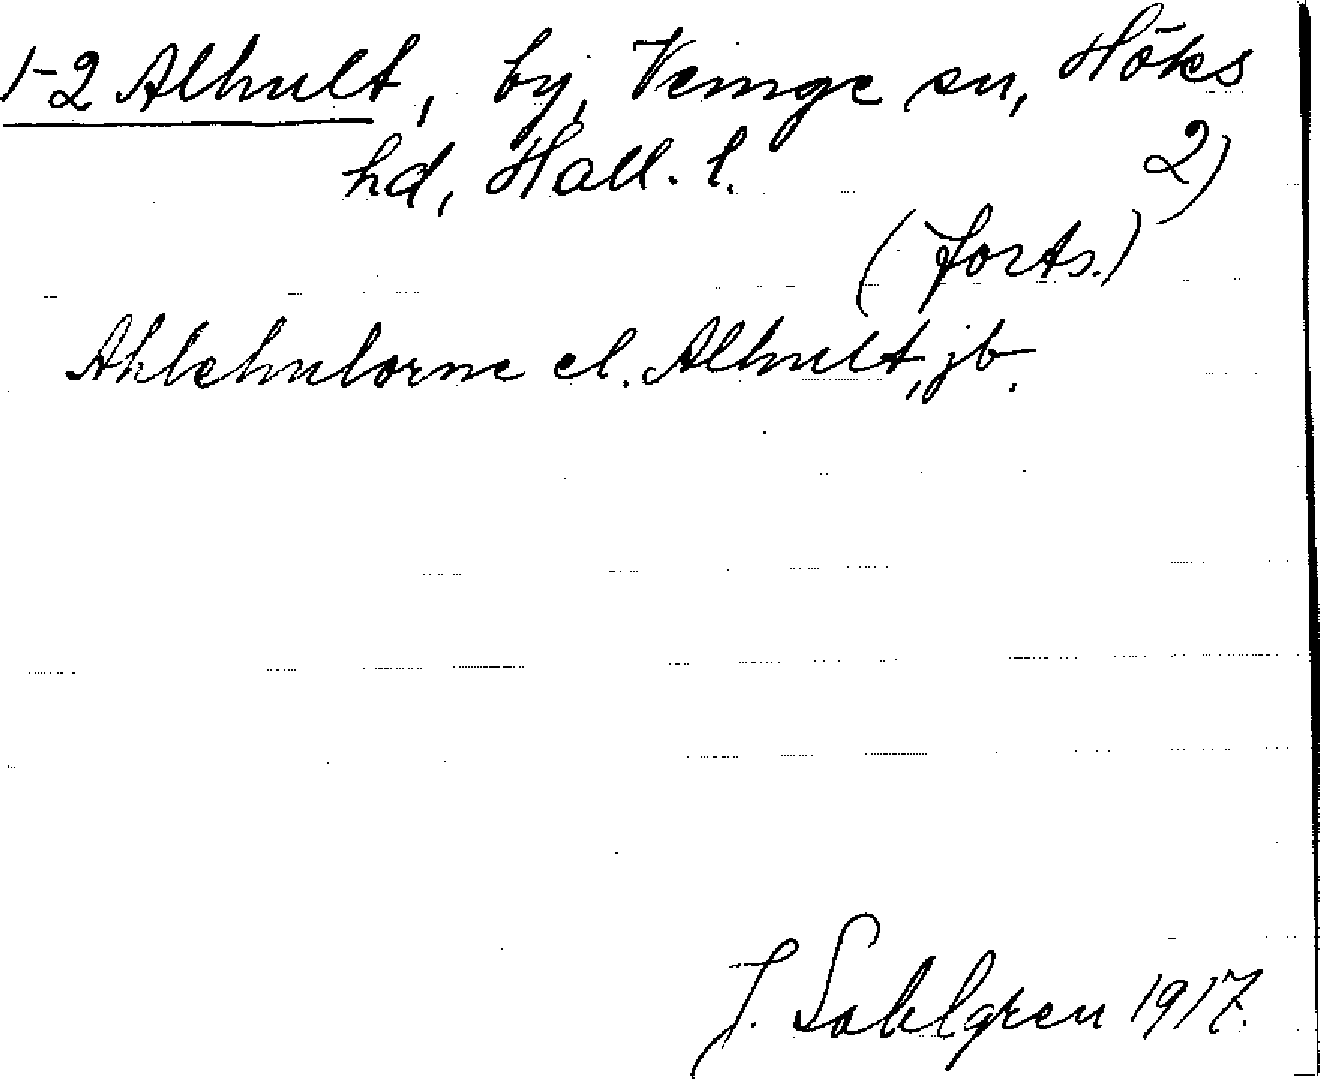 1-2 Alhult, by, Veinge sn, Höks
hd, Hall. l. 2)
(forts.)
Ahlehultorne el. Alhult, jb.
J. Sahlgren 1917.